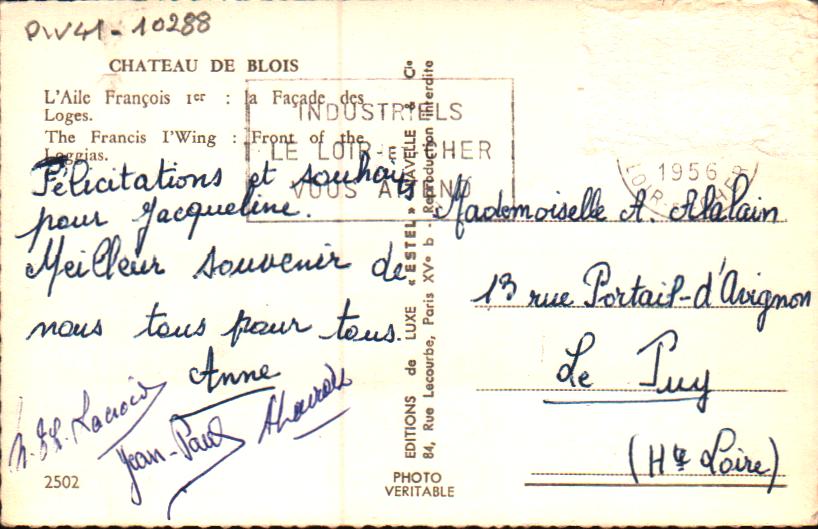 PW41-10288
CHATEAU DE BLOIS
L'Aile François 1er : la Façade des
Loges.
The Francis I'Wing : Front of the
Loggias.
INDUSTRIELS
LE LOIR-ET-CHER
VOUS ATTEND
1956
LOIR-ET-CHER
Félicitations et souhaits
pour Jacqueline.
Meilleur souvenir de
nous tous pour tous.
Anne
Lacroix
Jean-Paul
2502
EDITIONS de LUXE « ESTEL » LAVELLE & Cie
84, Rue Lecourbe, Paris XVe b - Reproduction interdite
PHOTO
VERITABLE
Mademoiselle A. Alalain
13 rue Portail-d'Avignon
Le Puy
(Hte Loire)